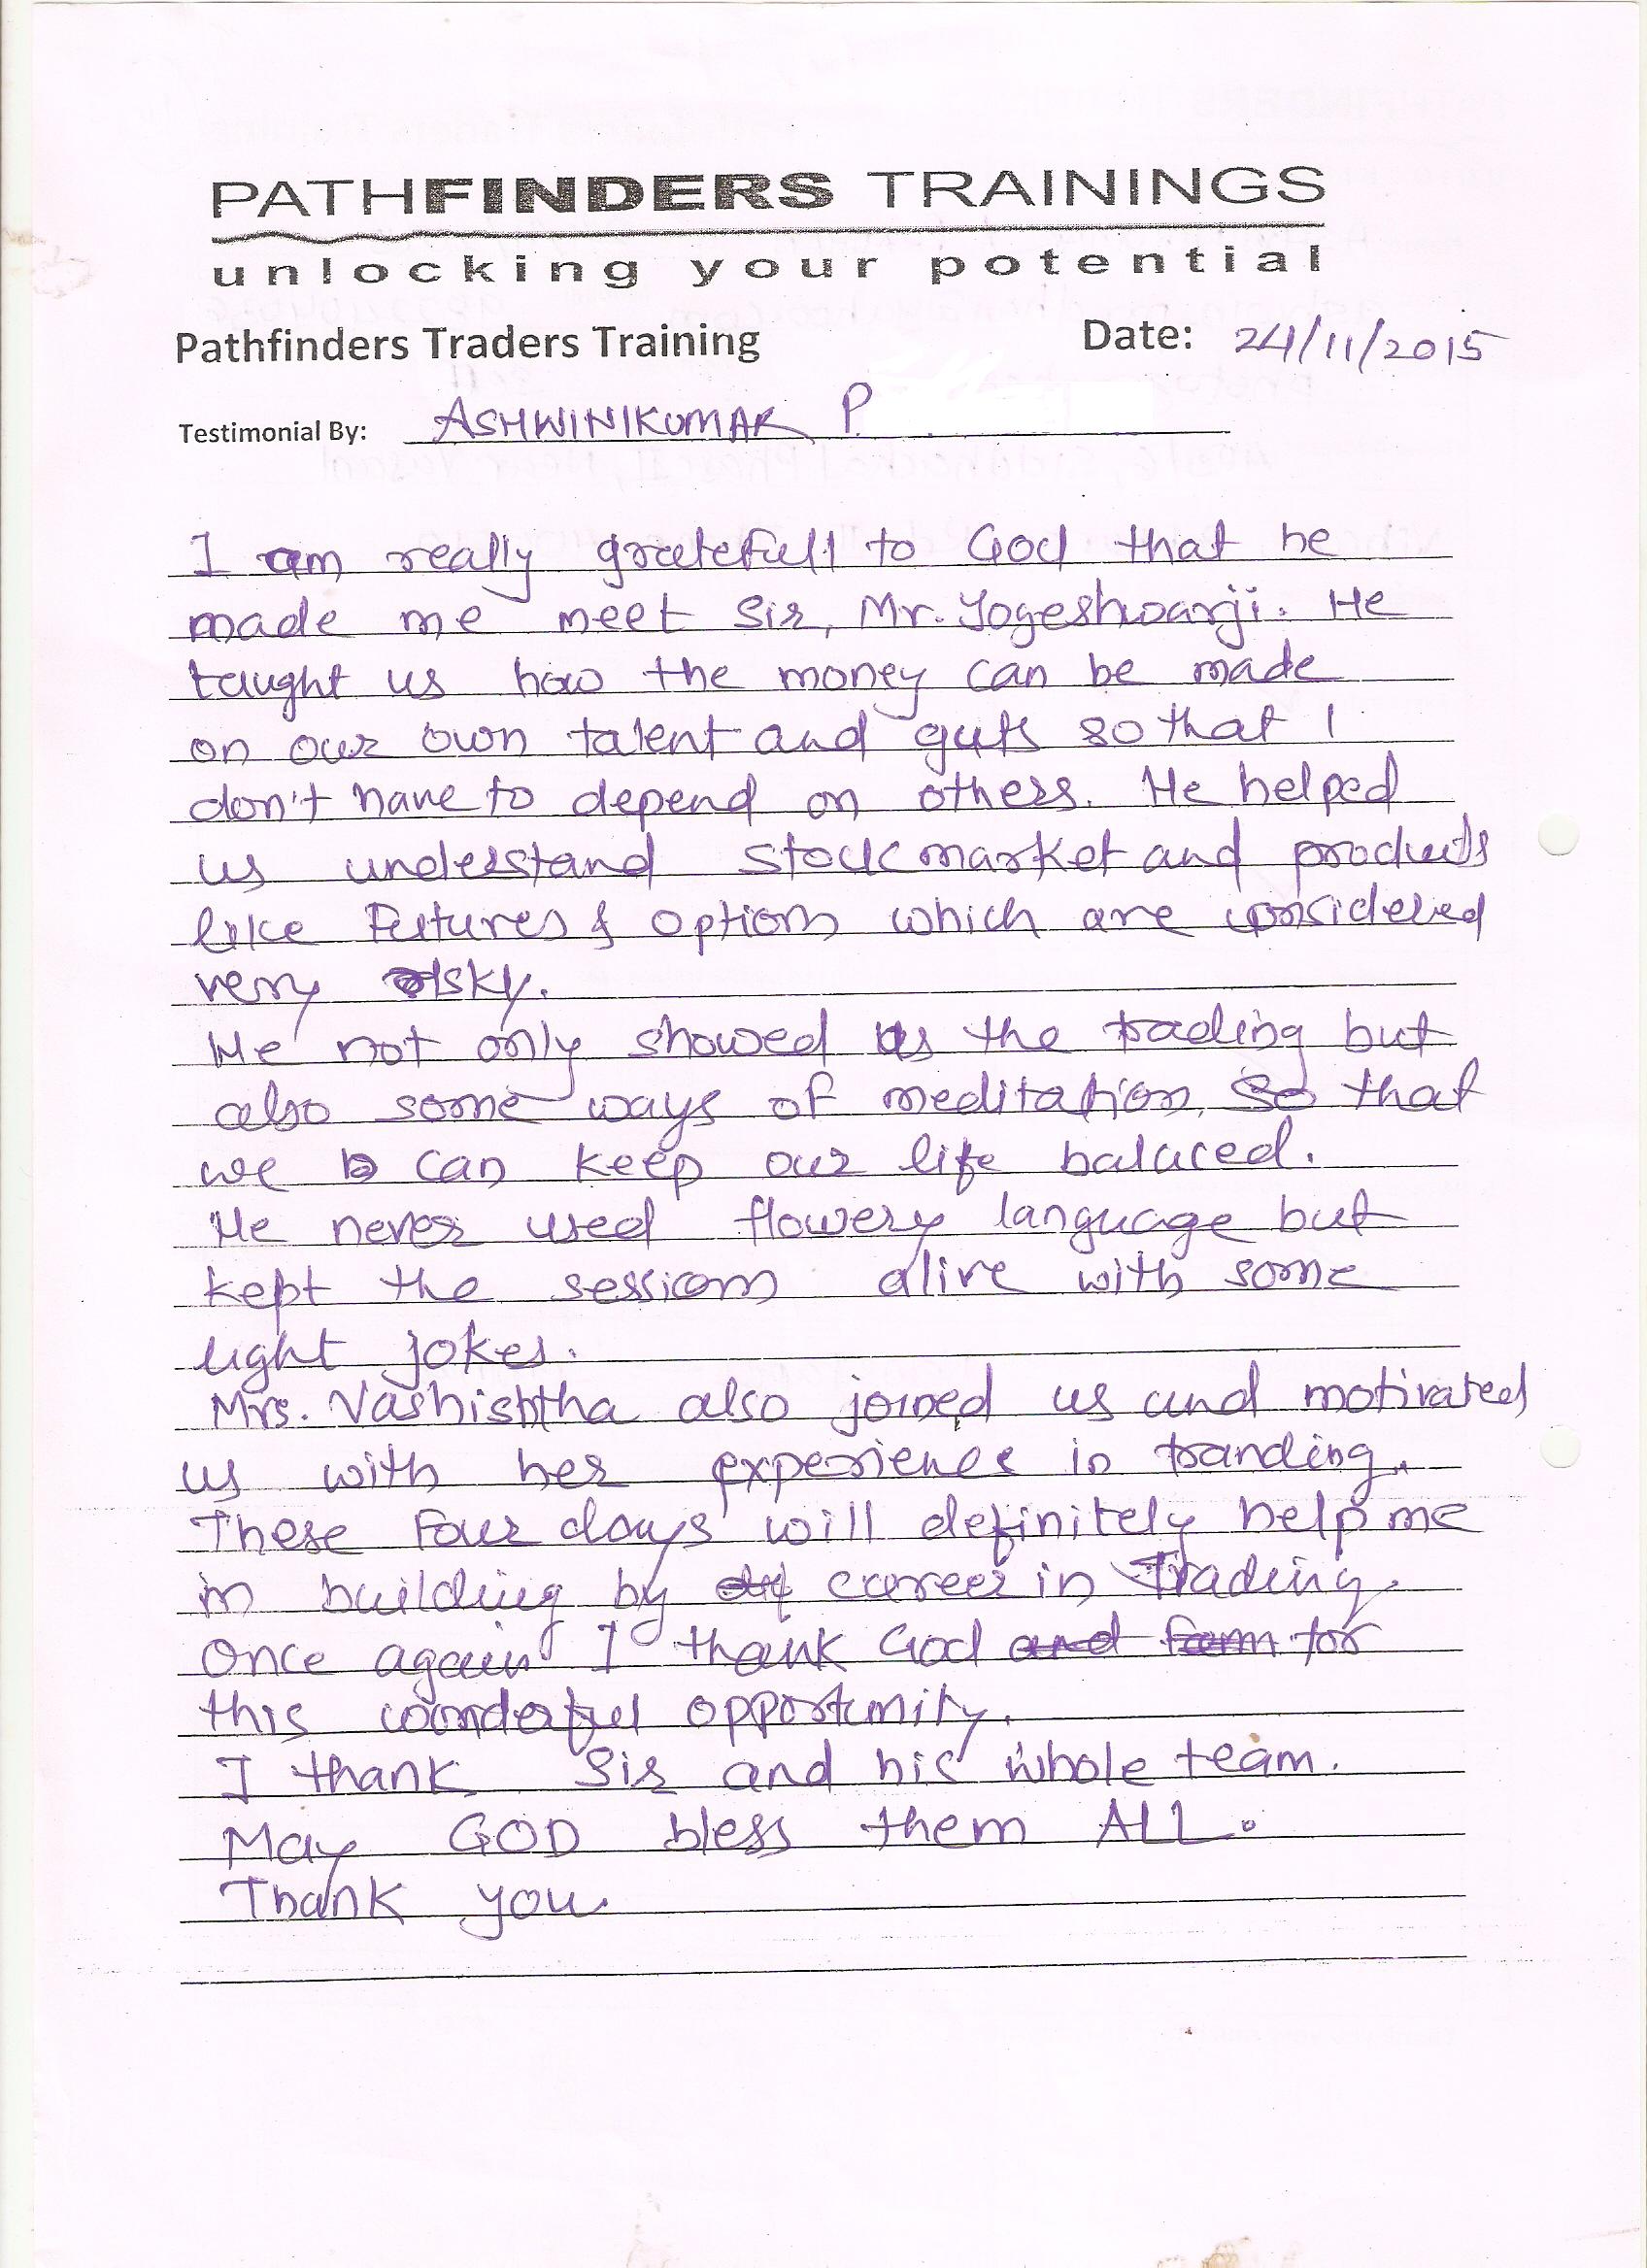 PATHFINDERS TRAININGS
unlocking your potential
Pathfinders Traders Training Date: 24/11/2015
Testimonial By: ASHWINIKUMAR P.
I am really gratefull to God that he
made me meet Sir, Mr. Yogeshwarji. He
taught us how the money can be made
on our own talent and guts so that I
don't have to depend on others. He helped
us understand stock market and products
like Futures & options which are considered
very risky.
He not only showed us the trading but
also some ways of meditation, so that
we can keep our life balaced.
He never used flowery language but
kept the sessions alive with some
light jokes.
Mrs. Vashishtha also joined us and motivated
us with her experience in tranding.
These four days will definitely help me
in building by career in Trading.
Once again I thank God and for
this wonderful opportunity.
I thank Sir and his whole team.
May GOD bless them ALL.
Thank you.